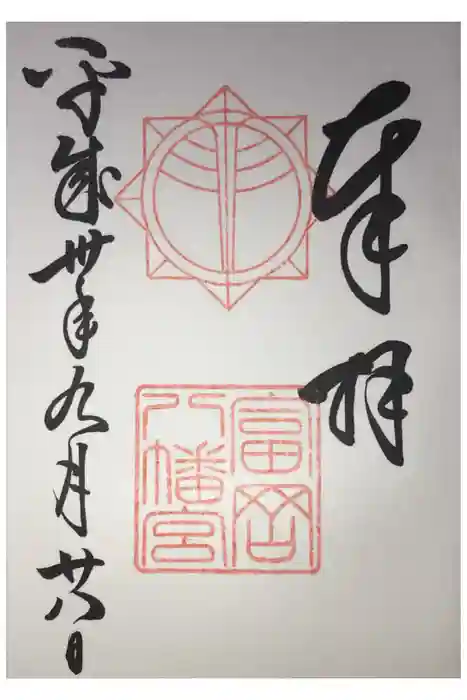 奉拝
富岡
八幡宮
平成卅年九月廿八日